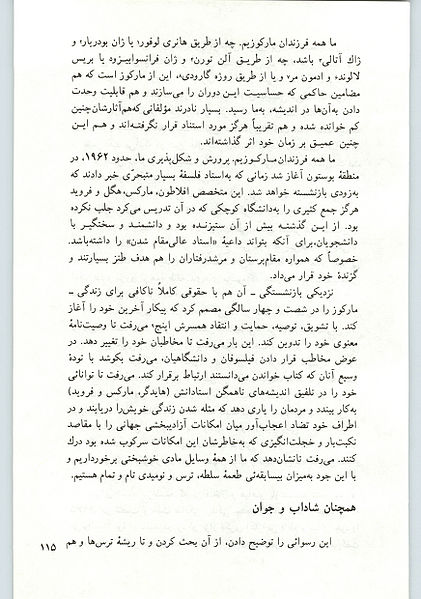 ما همه فرزندان مارکوزیم. چه از طریق هانری لوفور؛ یا ژان بودریار؛ و
ژاك آتالی؛ باشد، چه از طریـق آلن تورن؛ و ژان فرانسوابیزو؛ یا بریس
لالوند؛ و ادمون مر؛ و یا از طریق روژه گارودی؛، این از مارکوز است که هم
مضامین حاکمی که حساسیت ایـن دوران را می‌سازند و هم قابلیت وحدت
دادن به‌آن‌ها در اندیشه، به‌ما رسید. بسیار نادرند مؤلفانی که‌هم‌آثارشان‌چنین
کم خوانده شده و هم تقریباً هرگز مورد استناد قرار نگرفته‌اند و هـم ایـن
چنین عمیـق بر زمان خود اثر گذاشته‌اند.
ما همه فرزندان مـارکـوزیم. پرورش و شکل‌پذیری ما، حدود ۱۹۶۲، در
منطقهٔ بوستون آغاز شد زمانی که به‌استاد فلسفهٔ بسیار متبحّری خبر دادند که
به‌زودی بازنشسته خواهد شد. این متخصص افلاطون، مارکس، هگل و فروید
هرگز جمع کثیری را به‌دانشگاه کوچکی که در آن تدریس می‌کرد جلب نکرده
بود. از ایـن گذشتـه بیش از آن ستیزنده بود و دانشمند و سختگیر با
دانشجویان، برای آنکه بتواند داعیهٔ «استاد عالی‌مقام شدن» را داشته‌باشد.
خصوصاً که همواره مقام‌پرستان و مرشدرفتاران را هم هدف طنز بسیارتند و
گزندهٔ خود قرار می‌داد.
نزدیکی بازنشستگی ـ آن هم با حقوقی کاملاً ناکافی برای زندگی ـ
مارکوز را در شصت و چهار سالگی مصمم کرد که پیکار آخرین خود را آغاز
کند. با تشویق، توصیه، حمایت و انتقاد همسرش اینج، می‌رفت تا وصیت‌نامهٔ
معنوی خود را تدوین کند. این بار می‌رفت تا مخاطبان خود را تغییر دهد. در
عوض مخاطب قرار دادن فیلسوفان و دانشگاهیان، می‌رفت بکوشد با تودهٔ
وسیع آنان که کتاب خواندن می‌دانستند ارتباط برقرار کند. می‌رفت تا توانائی
خود را در تلفیق اندیشه‌های ناهمگن استادانش (هایدگر، مارکس و فروید)
به‌کار ببندد و مردمان را یاری دهد که مثله شدن زندگی خویش‌را دریابند و در
اطراف خود تضاد اعجاب‌آور میان امکانات آزادیبخشی جهانی را با مقاصد
نکبت‌بار و خجلت‌انگیزی که به‌خاطرشان این امکانات سرکوب شده بود درك
کنند. می‌رفت تانشان‌دهد که ما از همهٔ وسایل مادی خوشبختی برخورداریم و
با این جود به‌میزان بیسابقه‌ئی طعمهٔ سلطه، ترس و نومیدی تام و تمام هستیم.
همچنان شاداب و جوان
این رسوائی را توضیح دادن، از آن بحث کردن و تا ریشهٔ ترس‌ها و هم
۱۱۵